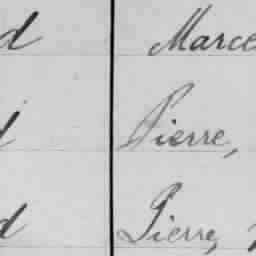 d Marce
d Pierre,
d Pierre,